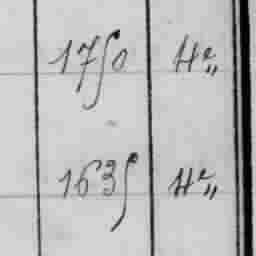 1750 Hе„
1635 Hе„